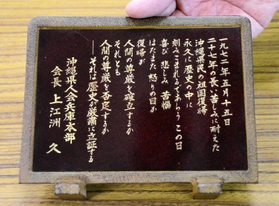 一九七二年五月十五日
二十七年の長い苦しみに耐えた
沖縄県民の祖国復帰
永久に歴史の中に
刻みこまれるであろう この日
喜び 悲しみ 苦悩
はたまた 怒りの日か
復帰が
人間の尊厳を確立するか
それとも
人間の尊厳を否定するか
——それは歴史が厳粛に立証する
沖縄県人会兵庫本部
会長 上江洲 久